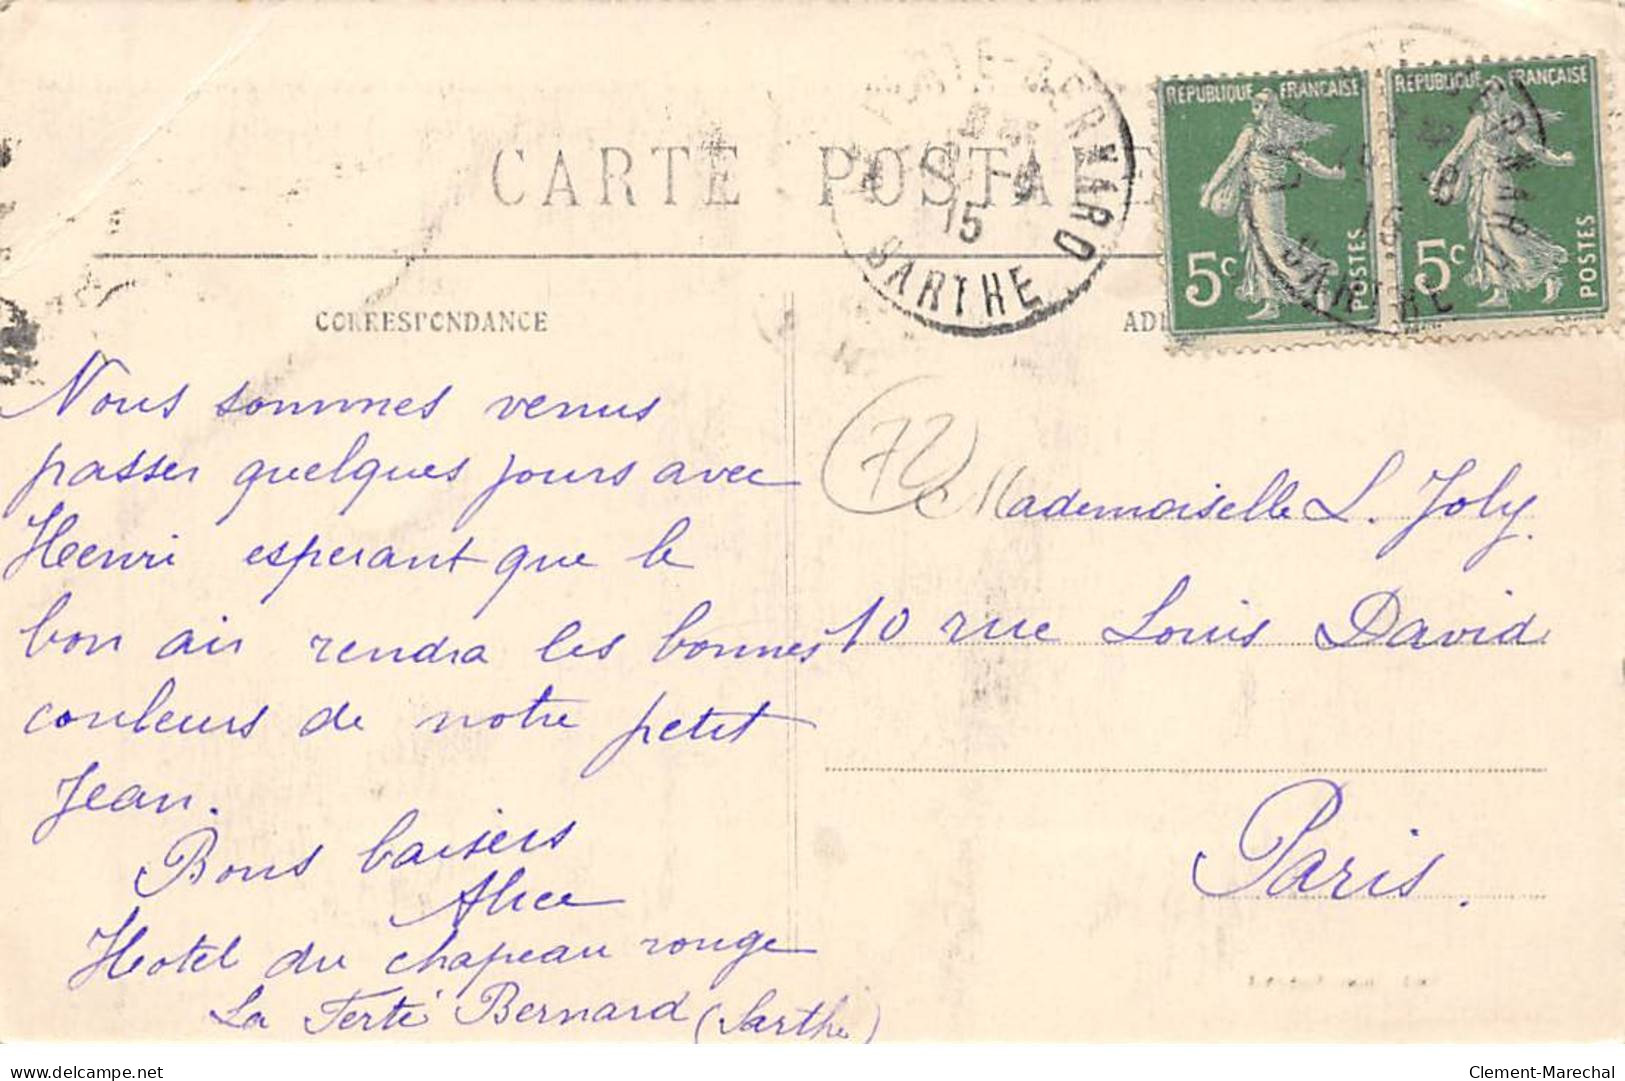 CARTE POSTALE
CORRESPONDANCE
REPUBLIQUE FRANÇAISE
5c
POSTES
REPUBLIQUE FRANÇAISE
5c
POSTES
15
SARTHE
72
Nous sommes venus
passer quelques jours avec
Henri esperant que le
bon air rendra les bonnes
couleurs de notre petit
Jean.
Bons baisers
Alice
Hotel du chapeau rouge
La Ferté Bernard (Sarthe)
Mademoiselle L. Joly.
10 rue Louis David
Paris.
Clement-Marechal